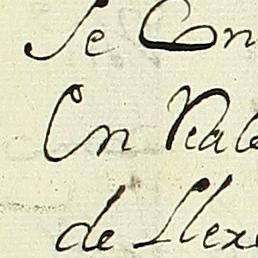 Se Con
En Reale
de Llere